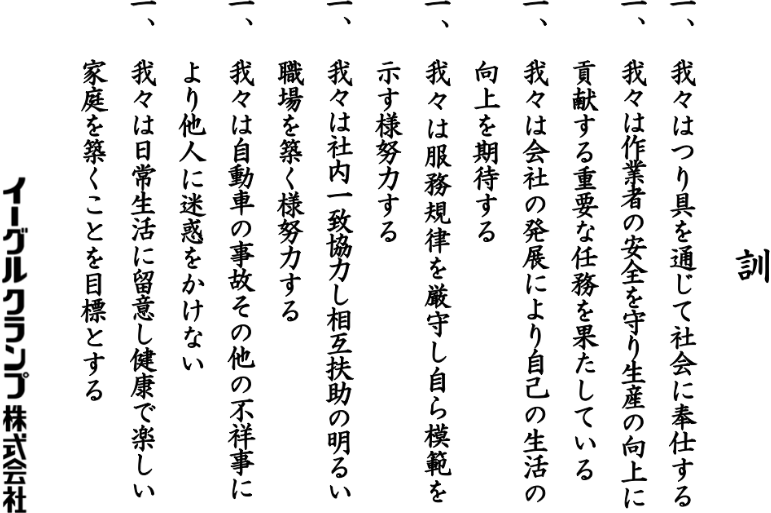 訓
一、我々はつり具を通じて社会に奉仕する
一、我々は作業者の安全を守り生産の向上に
貢献する重要な任務を果たしている
一、我々は会社の発展により自己の生活の
向上を期待する
一、我々は服務規律を厳守し自ら模範を
示す様努力する
一、我々は社内一致協力し相互扶助の明るい
職場を築く様努力する
一、我々は自動車の事故その他の不祥事に
より他人に迷惑をかけない
一、我々は日常生活に留意し健康で楽しい
家庭を築くことを目標とする
イーグルクランプ株式会社